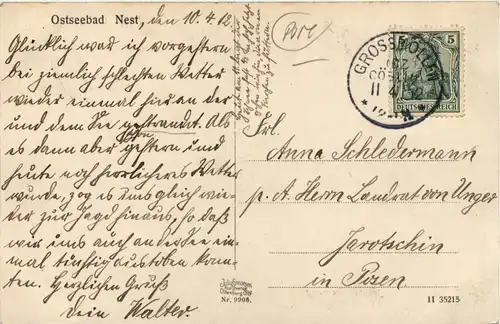 Ostseebad Nest, den 10.4.12.
Glücklich ward ich vorgestern
bei ziemlich schlechten Wetter
wieder einmal hier an der
und dem See gestrandet. Als
es dann aber schon
gestern und
heute noch herrlicheres Wetter
wurde, zog es uns gleich wie-
der zur Jagd hinaus, so daß
wir uns auch an der See ein-
mal tüchtig austoben konn-
ten. Herzlichen Gruß
Dein Walter.
GROSSMÖLLEN
5 5
DEUTSCHES REICH
Frl.
Anna Schledermann
p. A. Herrn Landrat von Unger
Jarotschin
in Posen
Nr. 9906.
II 35215